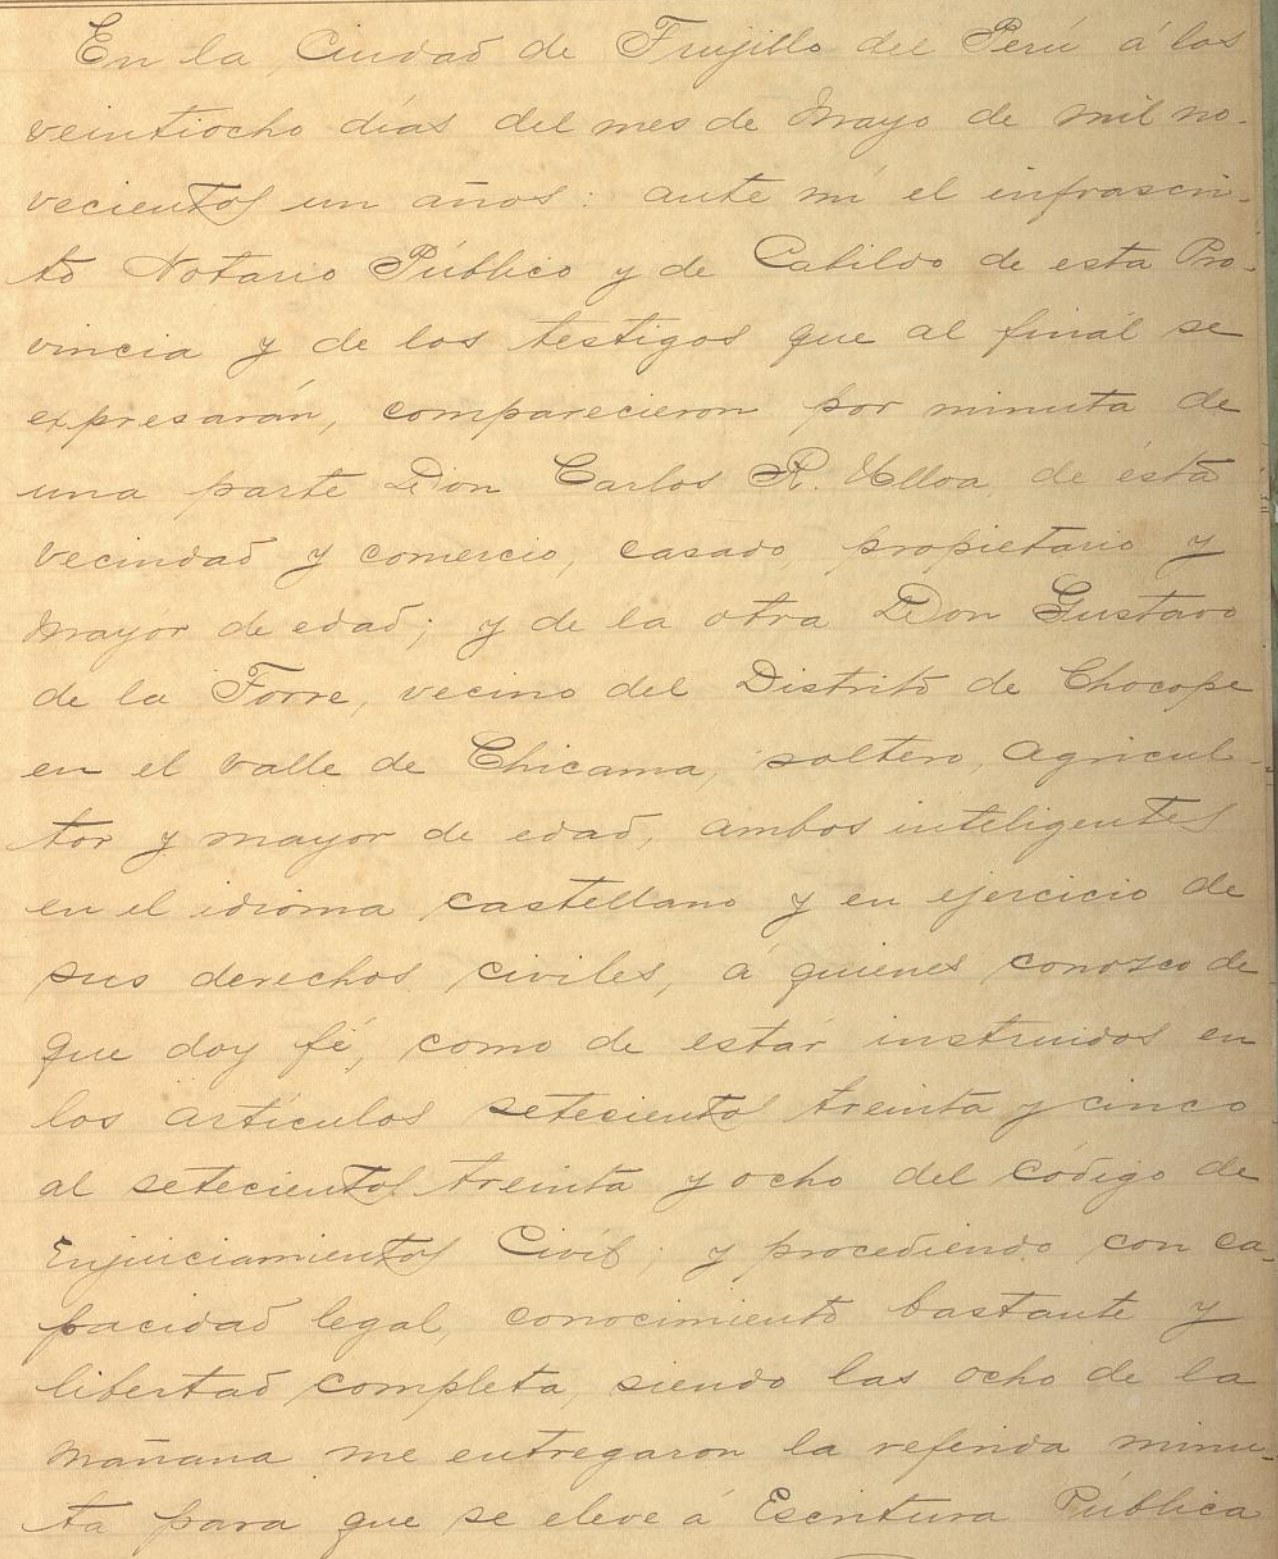 En la Ciudad de Trujillo del Perú á los
veintiocho días del mes de Mayo de mil no-
vecientos un años: ante mí el infrascri-
to Notario Público y de Cabildo de esta Pro-
vincia y de los testigos que al final se
expresarán, comparecieron por minuta de
una parte Don Carlos R. Ulloa, de ésta
vecindad y comercio, casado, propietario y
mayor de edad; y de la otra Don Gustavo
de la Torre, vecino del Distrito de Chocope
en el valle de Chicama, soltero, agricul-
tor y mayor de edad, ambos inteligentes
en el idioma castellano y en ejercicio de
sus derechos civiles, á quienes conozco de
que doy fé, como de estar instruidos en
los artículos setecientos treinta y cinco
al setecientos treinta y ocho del Código de
Enjuiciamientos Civil; y procediendo con ca-
pacidad legal, conocimiento bastante y
libertad completa, siendo las ocho de la
mañana me entregaron la referida minu-
ta para que se eleve á Escritura Pública